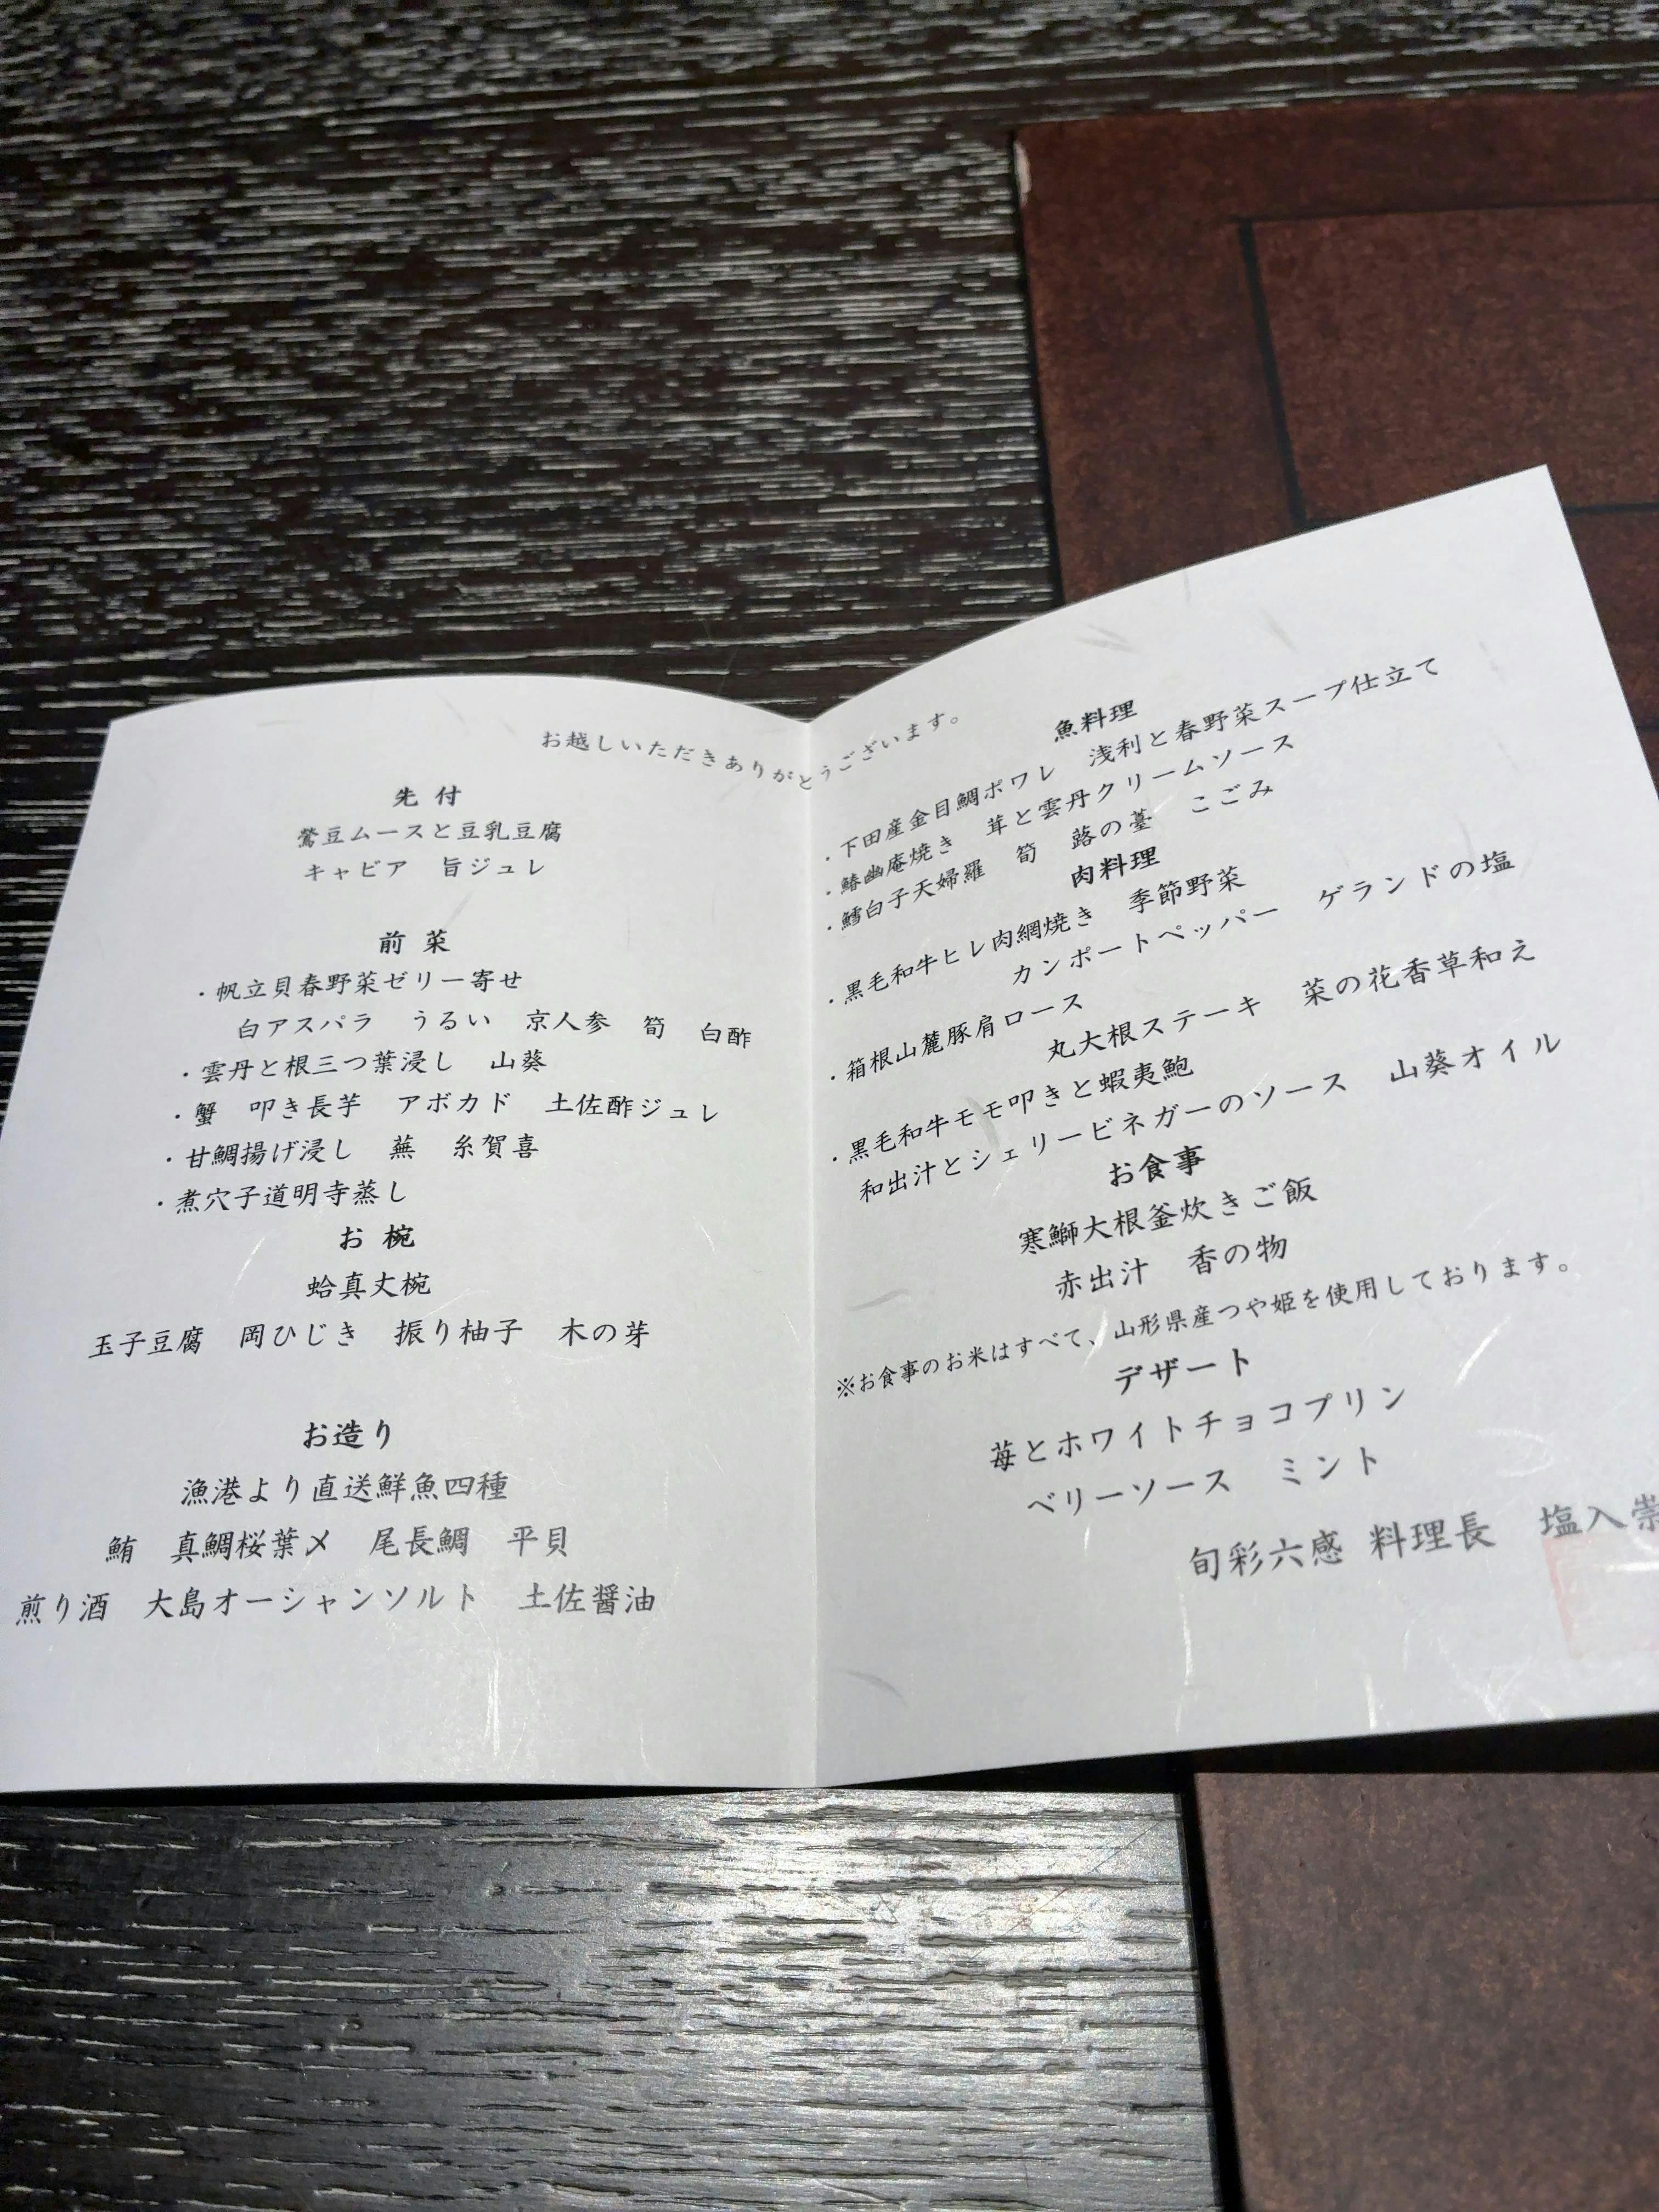 お越しいただきありがとうございます。
先 付
鶯豆ムースと豆乳豆腐
キャビア　旨ジュレ
前 菜
・帆立貝春野菜ゼリー寄せ
白アスパラ　うるい　京人参　筍　白酢
・雲丹と根三つ葉浸し　山葵
・蟹　叩き長芋　アボカド　土佐酢ジュレ
・甘鯛揚げ浸し　蕪　糸賀喜
・煮穴子道明寺蒸し
お 椀
蛤真丈椀
玉子豆腐　岡ひじき　振り柚子　木の芽
お造り
漁港より直送鮮魚四種
鮪　真鯛桜葉〆　尾長鯛　平貝
煎り酒　大島オーシャンソルト　土佐醤油
魚料理
・下田産金目鯛ポワレ　浅利と春野菜スープ仕立て
・鰆幽庵焼き　茸と雲丹クリームソース
・鱈白子天婦羅　筍　蕗の薹　こごみ
肉料理
・黒毛和牛ヒレ肉網焼き　季節野菜
カンポートペッパー　ゲランドの塩
・箱根山麓豚肩ロース
丸大根ステーキ　菜の花香草和え
・黒毛和牛モモ叩きと蝦夷鮑
和出汁とシェリービネガーのソース　山葵オイル
お食事
寒鰤大根釜炊きご飯
赤出汁　香の物
※お食事のお米はすべて、山形県産つや姫を使用しております。
デザート
苺とホワイトチョコプリン
ベリーソース　ミント
旬彩六感 料理長　塩入崇